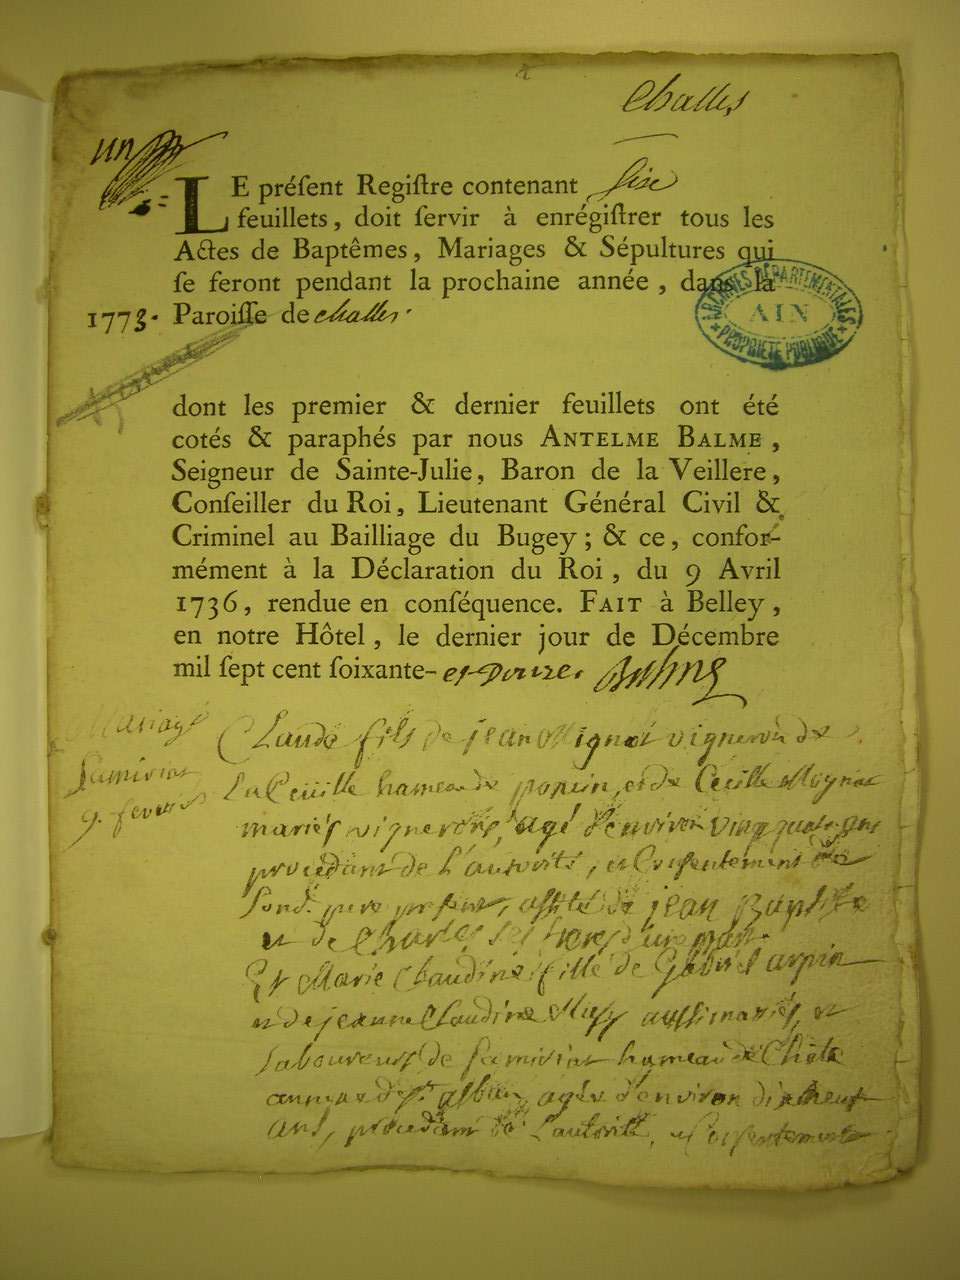 Challes
un
LE préſent Regiſtre contenant six
feuillets, doit ſervir à enrégiſtrer tous les
Actes de Baptêmes, Mariages & Sépultures qui
ſe feront pendant la prochaine année, dans la
1773. Paroiſſe de challes.
ARCHIVES DÉPARTEMENTALES
AIN
PROPRIÉTÉ PUBLIQUE
dont les premier & dernier feuillets ont été
cotés & paraphés par nous ANTELME BALME,
Seigneur de Sainte-Julie, Baron de la Veillere,
Conſeiller du Roi, Lieutenant Général Civil &
Criminel au Bailliage du Bugey; & ce, confor-
mément à la Déclaration du Roi, du 9 Avril
1736, rendue en conſéquence. FAIT à Belley,
en notre Hôtel, le dernier jour de Décembre
mil ſept cent ſoixante-et Douze. Balme
Mariage
9. fevrier
Claude fils de jean Mignot vigneron de
hameau de et de Cecille
mariés vignerons, agé d'environ vingquatre ans
procedant de l'autorité, et Consentement de
son d. pere present, assisté de jean Baptiste
et de Charles ses freres d'une part.
Et Marie Claudine fille de Gabriel arpin
et de jeanne Claudine aussi mariés, et
laboureurs de hameau de
annexe de St. alban, agée d'environ dixneuf
ans, procedant de L'autorité, et Consentement